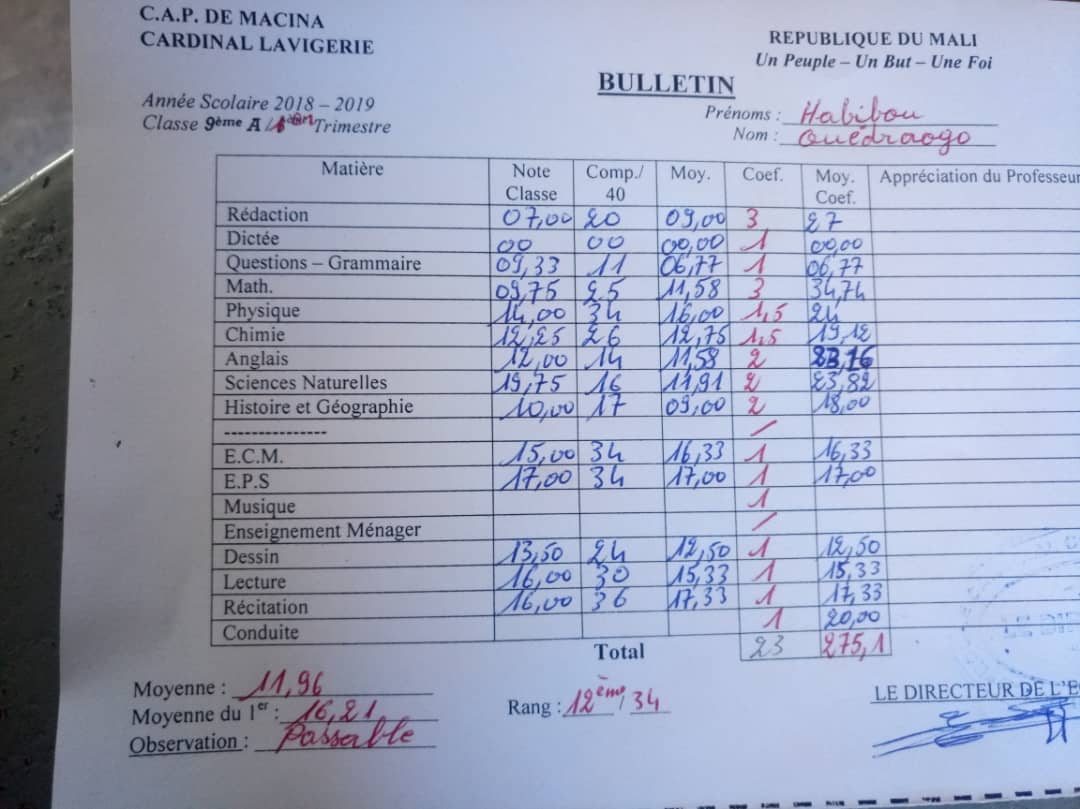 C.A.P. DE MACINA
CARDINAL LAVIGERIE
REPUBLIQUE DU MALI
Un Peuple – Un But – Une Foi
BULLETIN
Année Scolaire 2018 – 2019
Classe 9ème A / Trimestre
Prénoms : Habibou
Nom : Ouédraogo
Matière Note Classe Comp./ 40 Moy. Coef. Moy. Coef. Appréciation du Professeur
Rédaction 07,00 20 09,00 3 27
Dictée 00 00 00,00 1 00,00
Questions – Grammaire 09,33 11 06,77 1 06,77
Math. 09,75 25 11,58 3 34,74
Physique 14,00 34 16,00 1,5 24
Chimie 12,25 26 12,75 1,5 19,12
Anglais 12,00 14 11,58 2 23,16
Sciences Naturelles 19,75 16 11,91 2 23,82
Histoire et Géographie 10,00 17 09,00 2 18,00
--------------- /
E.C.M. 15,00 34 16,33 1 16,33
E.P.S 17,00 34 17,00 1 17,00
Musique 1
Enseignement Ménager /
Dessin 13,50 24 12,50 1 12,50
Lecture 16,00 30 15,33 1 15,33
Récitation 16,00 36 17,33 1 17,33
Conduite 1 20,00
Total 23 275,1
Moyenne : 11,96
Moyenne du 1er : 16,21
Observation : Passable
Rang : 12ème / 34
LE DIRECTEUR DE L'E